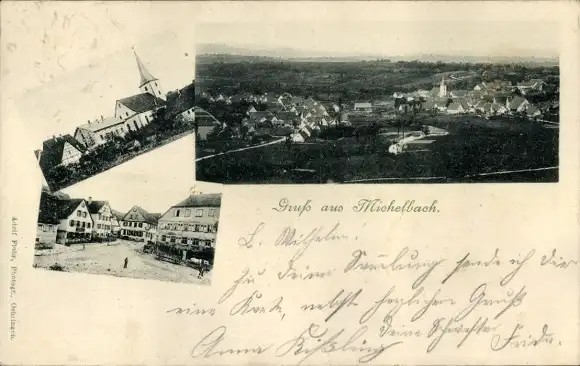 Gruß aus Michelbach.
L. Wilhelm!
Zu deine Samlung sende ich dir
eine Karte, nebst herzlichen Gruß
deine Schwester Frida.
Anna Kißling
Adolf Frohs, Photogr., Oehringen.